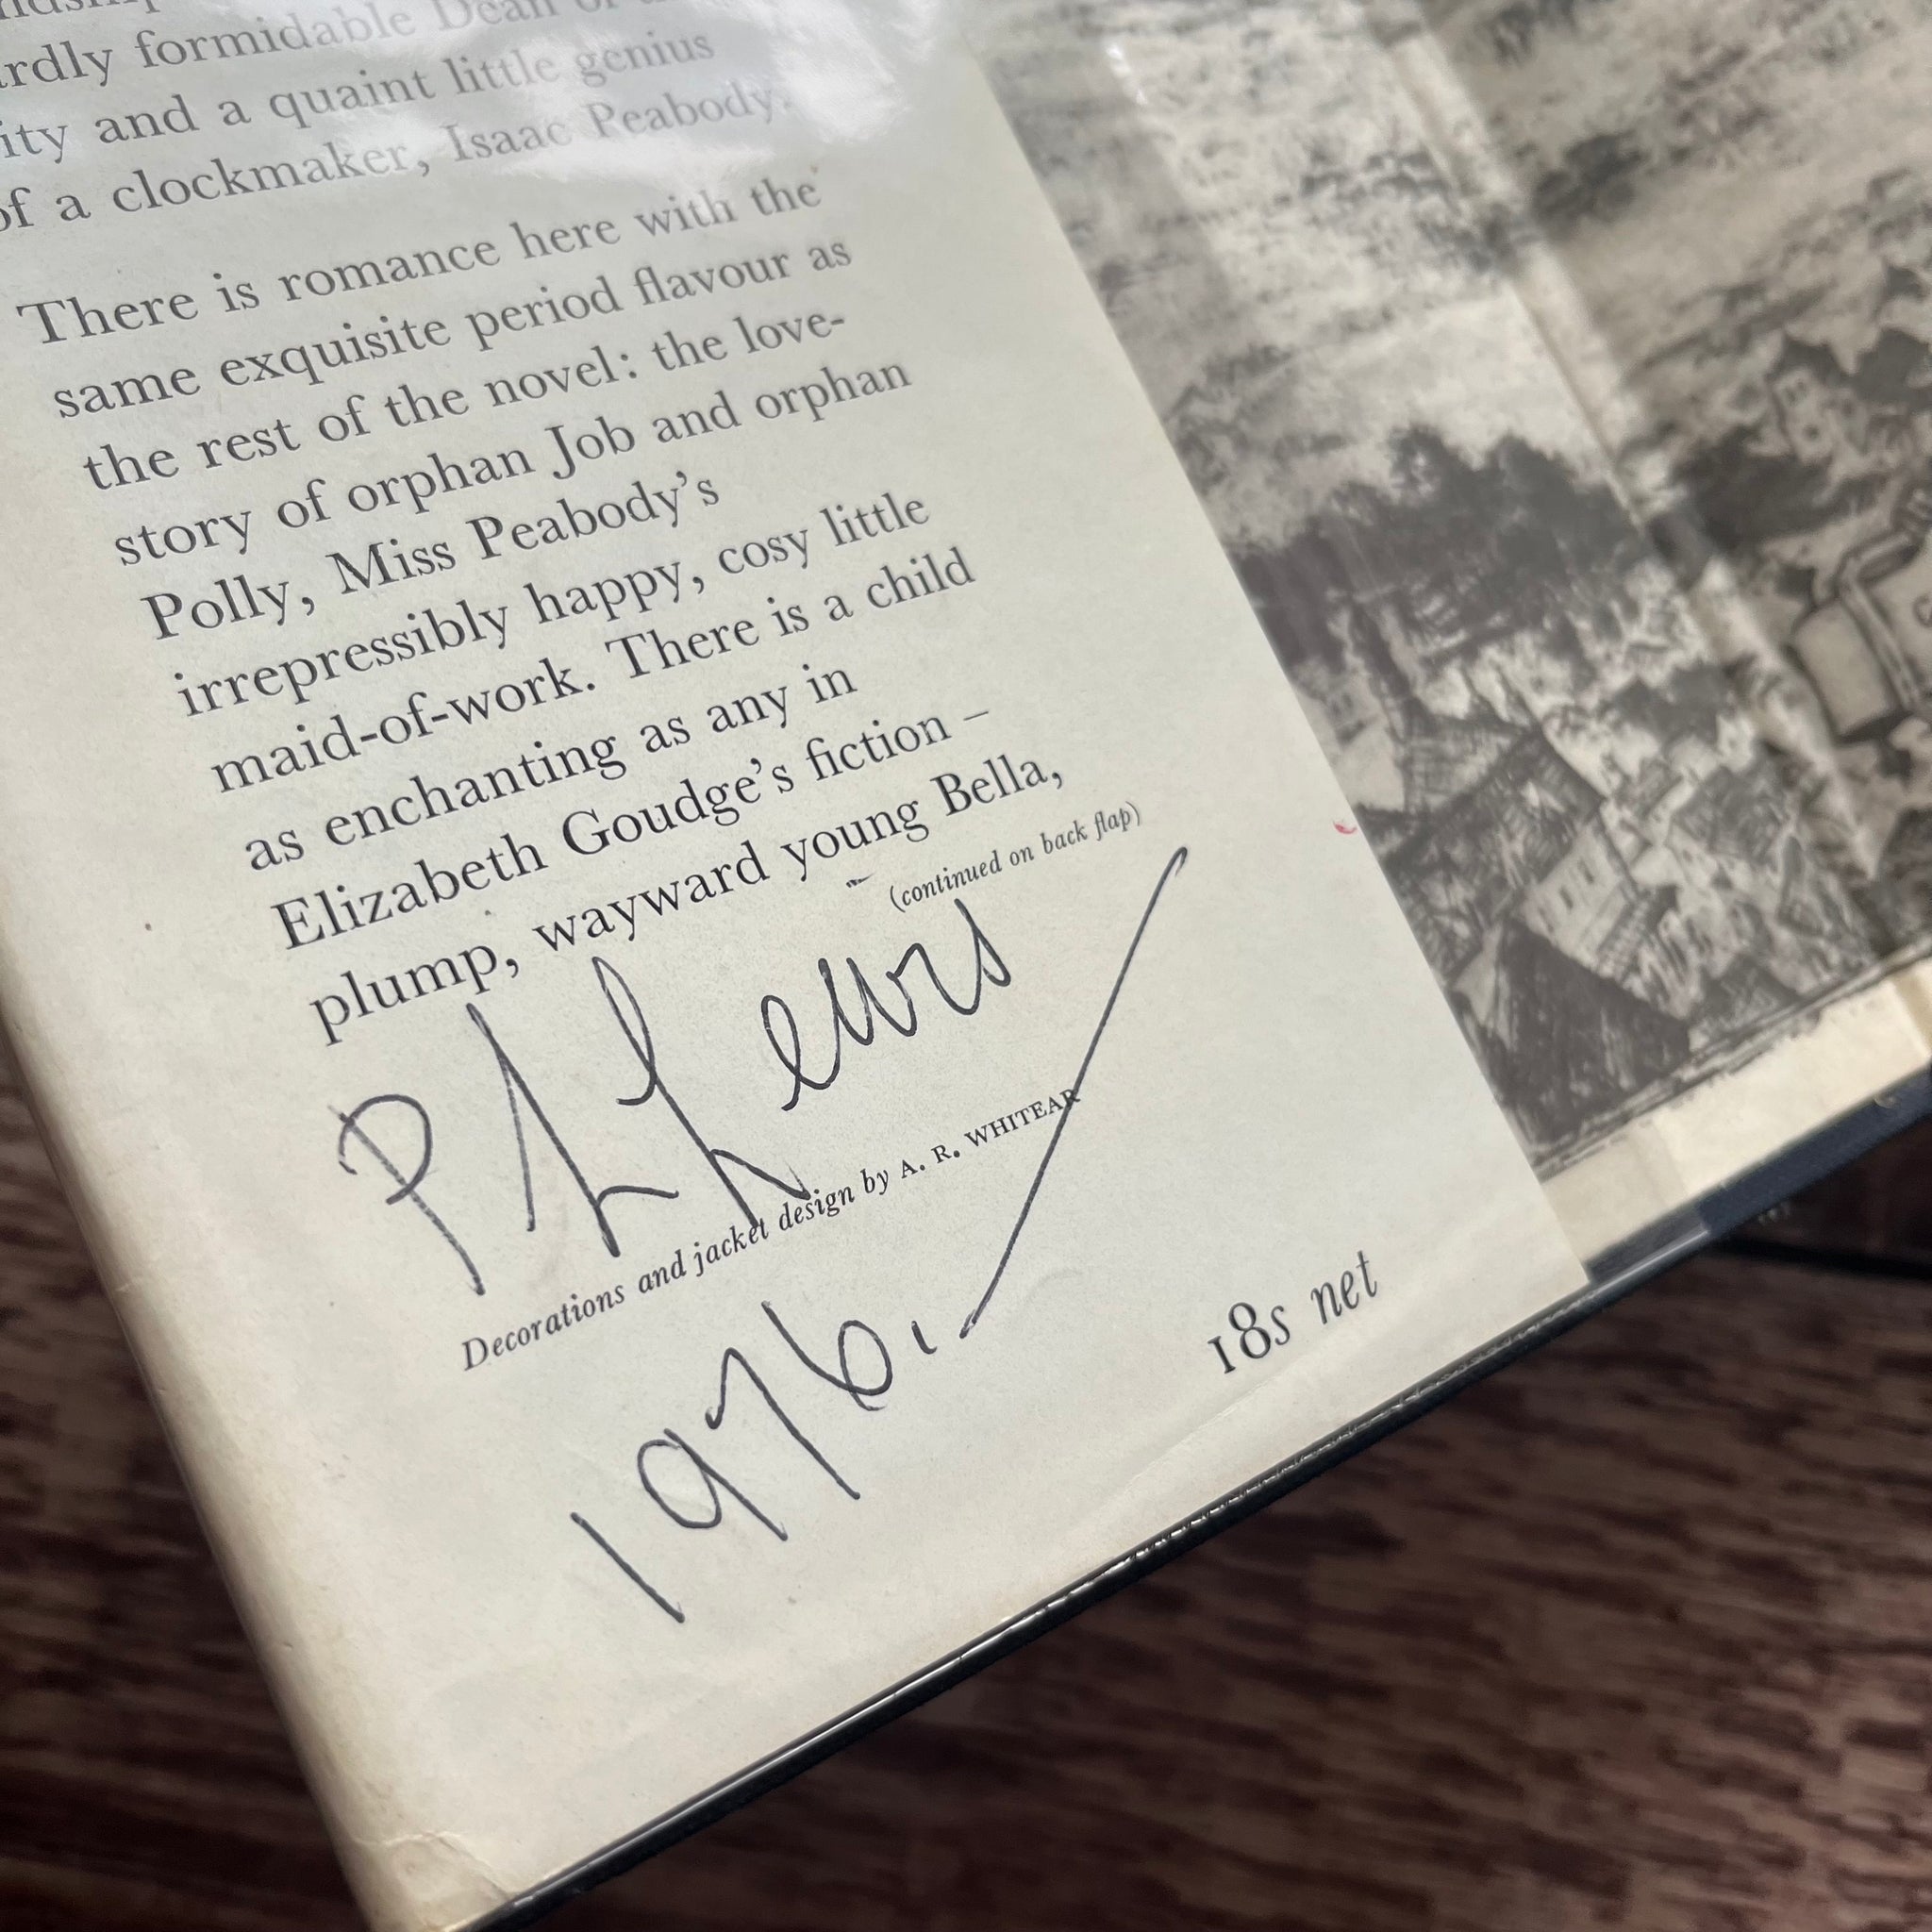 rdly formidable Dean of
ity and a quaint little genius
of a clockmaker, Isaac Peabody.
There is romance here with the
same exquisite period flavour as
the rest of the novel: the love-
story of orphan Job and orphan
Polly, Miss Peabody's
irrepressibly happy, cosy little
maid-of-work. There is a child
as enchanting as any in
Elizabeth Goudge's fiction –
plump, wayward young Bella,
(continued on back flap)
Lewis
Decorations and jacket design by A. R. WHITEAR
1976.
18s net